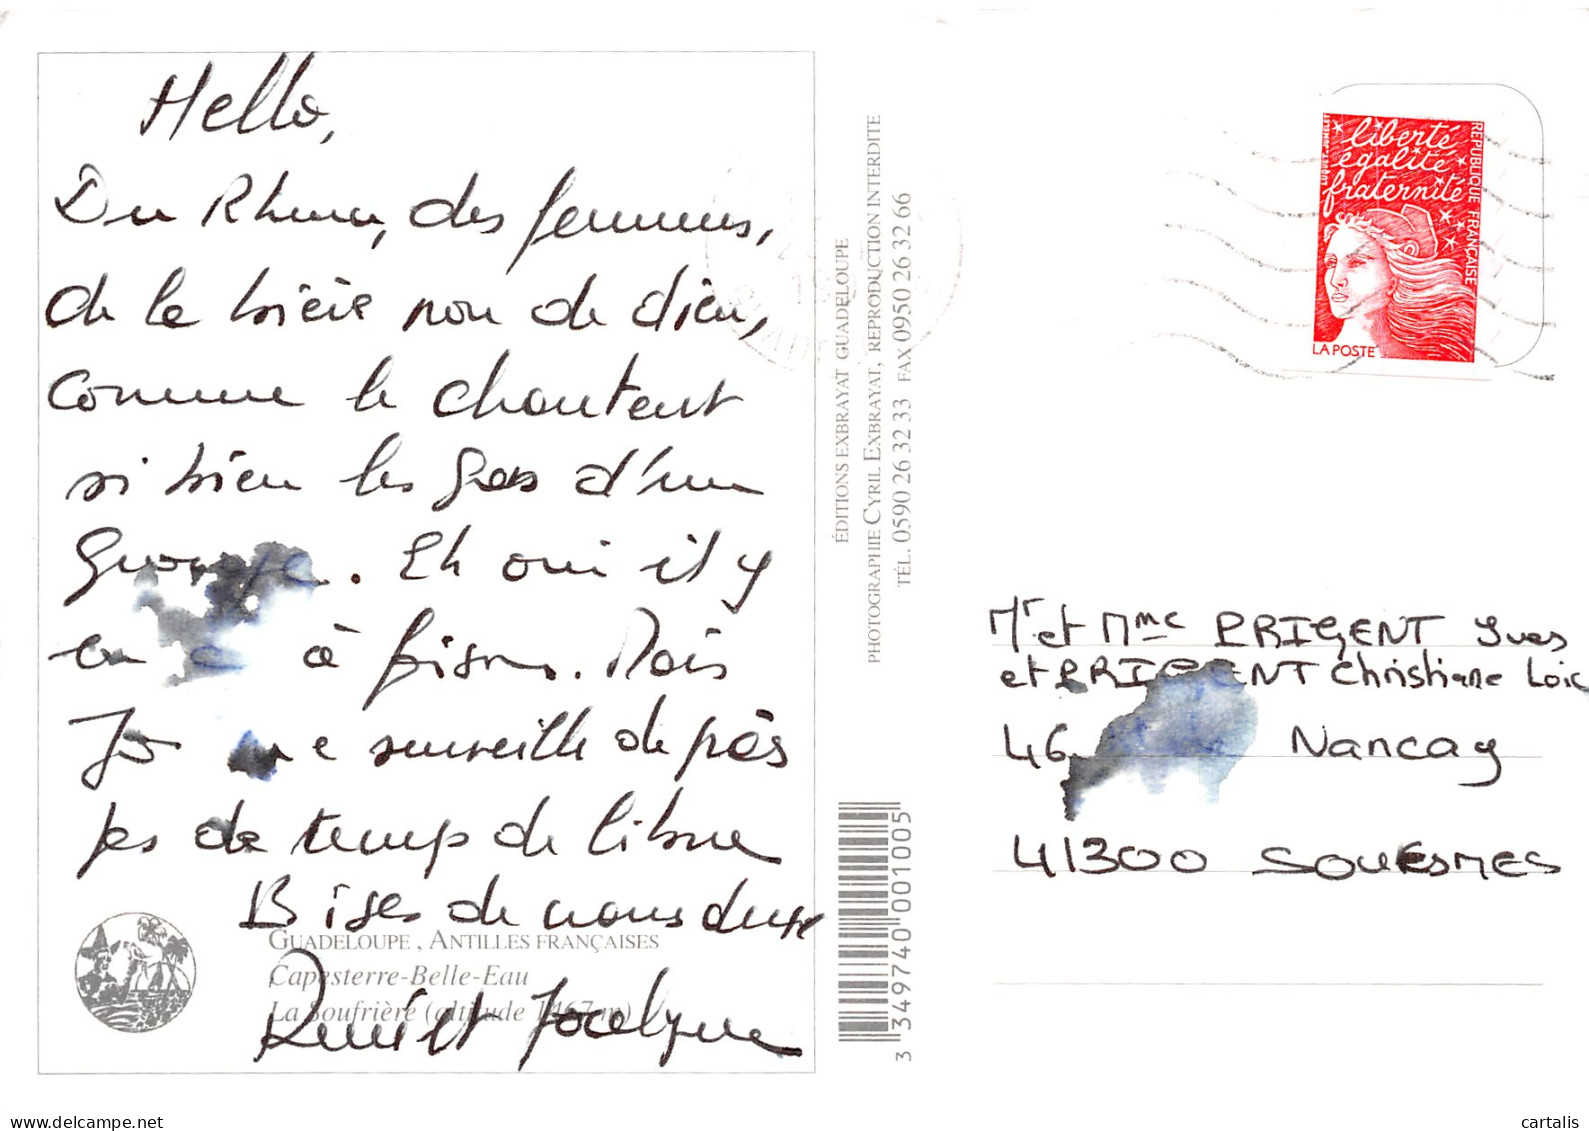 Hello,
Du Rhum, des femmes,
de la bière non de dieu,
comme le chantent
si bien les gas d'un
Groupe. Eh oui il y
en a à foison. Mais
Jo me surveille de près
pas de temps de libre
Bises de nous deux
René et Jocelyne
GUADELOUPE, ANTILLES FRANÇAISES
Capesterre-Belle-Eau
La Soufrière (altitude 1467 m)
ÉDITIONS EXBRAYAT GUADELOUPE
PHOTOGRAPHIE CYRIL EXBRAYAT, REPRODUCTION INTERDITE
TÉL. 0590 26 32 33 FAX 0950 26 32 66
3 349740 001005
liberté
égalité
fraternité
RÉPUBLIQUE FRANÇAISE
LA POSTE
Mr et Mme PRIGENT Yves
et PRIGENT Christiane Loic
46 Nancay
41300 SOUESMES
delcampe.net
cartalis